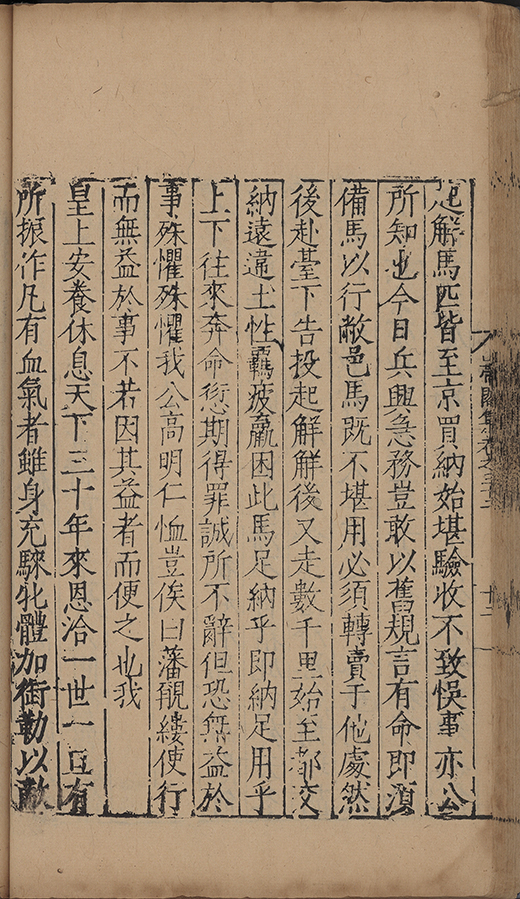 起解馬匹皆至京買納始堪驗收不致悞事亦公
所知也今日兵興急務豈敢以舊規言有命即須
備馬以行敝邑馬既不堪用必須轉賣于他處然
後赴臺下告投起解解後又走數千里始至都交
納遠違土性羈疲羸困此馬足納乎即納足用乎
上下往來奔命愆期得罪誠所不辭但恐無益於
事殊懼殊懼我公高明仁恤豈俟曰藩覼縷使行
而無益於事不若因其益者而便之也我
皇上安養休息天下三十年來恩洽一世一旦有
所振作凡有血氣者雖身充騋牝體加銜勒以敵